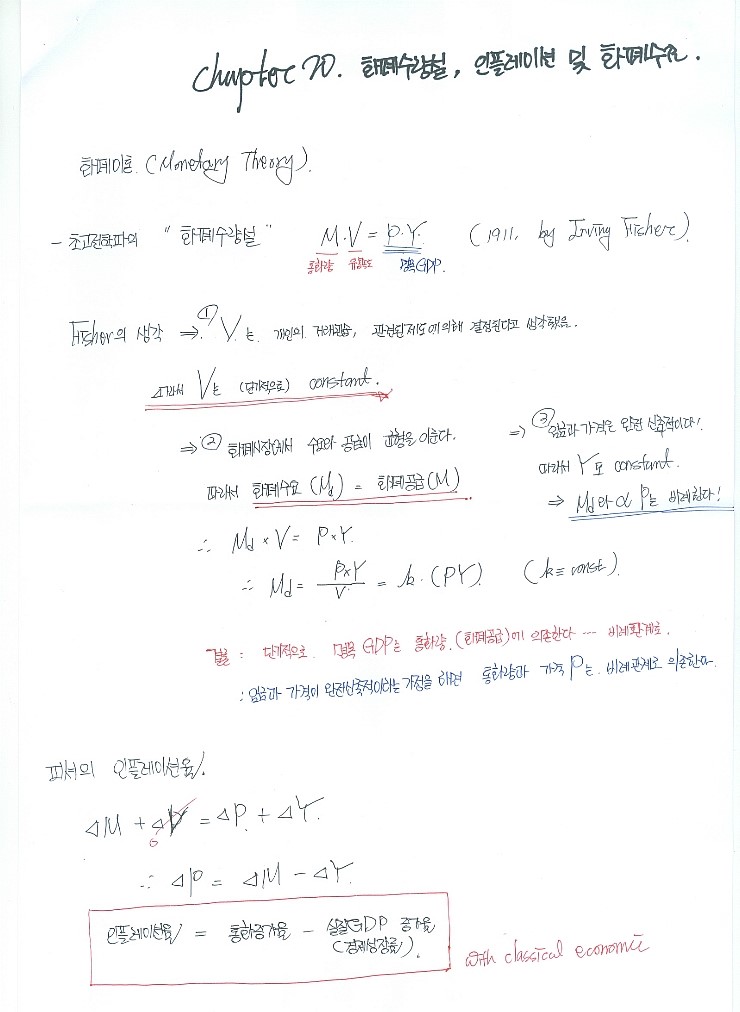 chapter 20. 화폐수량설, 인플레이션 및 화폐수요.
화폐이론 (Monetary Theory).
- 초고전학파의 "화폐수량설" M·V = P·Y. (1911, by Irving Fisher).
통화량 유통속도 명목GDP.
Fisher의 생각 ⇒ ① V는 개인의 거래관습, 관련된 제도에 의해 결정된다고 생각했음.
따라서 V는 (단기적으로) constant.
⇒ ② 화폐시장에서 수요와 공급이 균형을 이룬다.
따라서 화폐수요 (Md) = 화폐공급 (M)
⇒ ③ 임금과 가격은 완전 신축적이다!
따라서 Y도 constant.
⇒ Md와 α P는 비례한다!
∴ Md × V = P × Y.
∴ Md = P×Y/V = k · (PY). (k ≡ const).
결론 : 단기적으로 명목 GDP는 통화량 (화폐공급)에 의존한다 --- 비례관계로.
: 임금과 가격이 완전신축적이라는 가정을 하면 통화량과 가격 P는 비례관계로 의존한다.
피셔의 인플레이션율.
ΔM + ΔV = ΔP + ΔY.
0
∴ ΔP = ΔM - ΔY.
인플레이션율 = 통화증가율 - 실질GDP 증가율
(경제성장률).
with classical economic